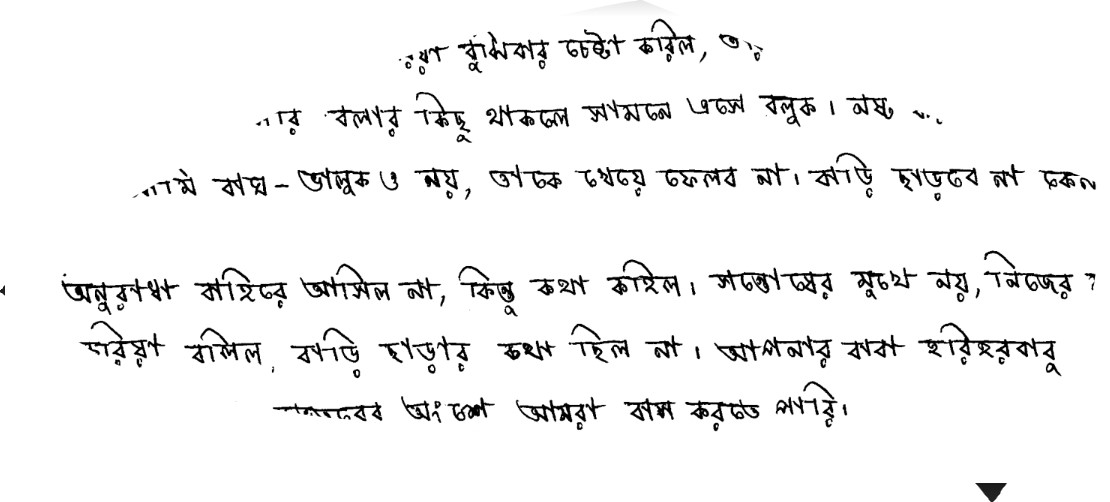 বুঝিবার চেষ্টা করিল,
বলার কিছু থাকলে সামনে এসে বলুক। নষ্ট
বাঘ-ভালুকও নয়, তাকে খেয়ে ফেলব না। বাড়ি ছাড়বে না কেন
অনুরাধা বাহিরে আসিল না, কিন্তু কথা কহিল। সন্তোষের মুখে নয়, নিজের
বলিল, বাড়ি ছাড়ার কথা ছিল না। আপনার বাবা হরিহরবাবু
অংশে আমরা বাস করতে পারি।